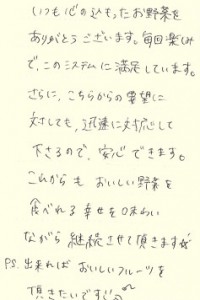 いつも心の込もったお野菜を
ありがとうございます。毎回楽しみ
で、このシステムに満足しています。
さらに、こちらからの要望に
対しても、迅速に対応して
下さるので、安心できます。
これからも おいしい野菜を
食べれる幸せを味わい
ながら 継続させて頂きます☆
P.S. 出来れば おいしいフルーツを
頂きたいです